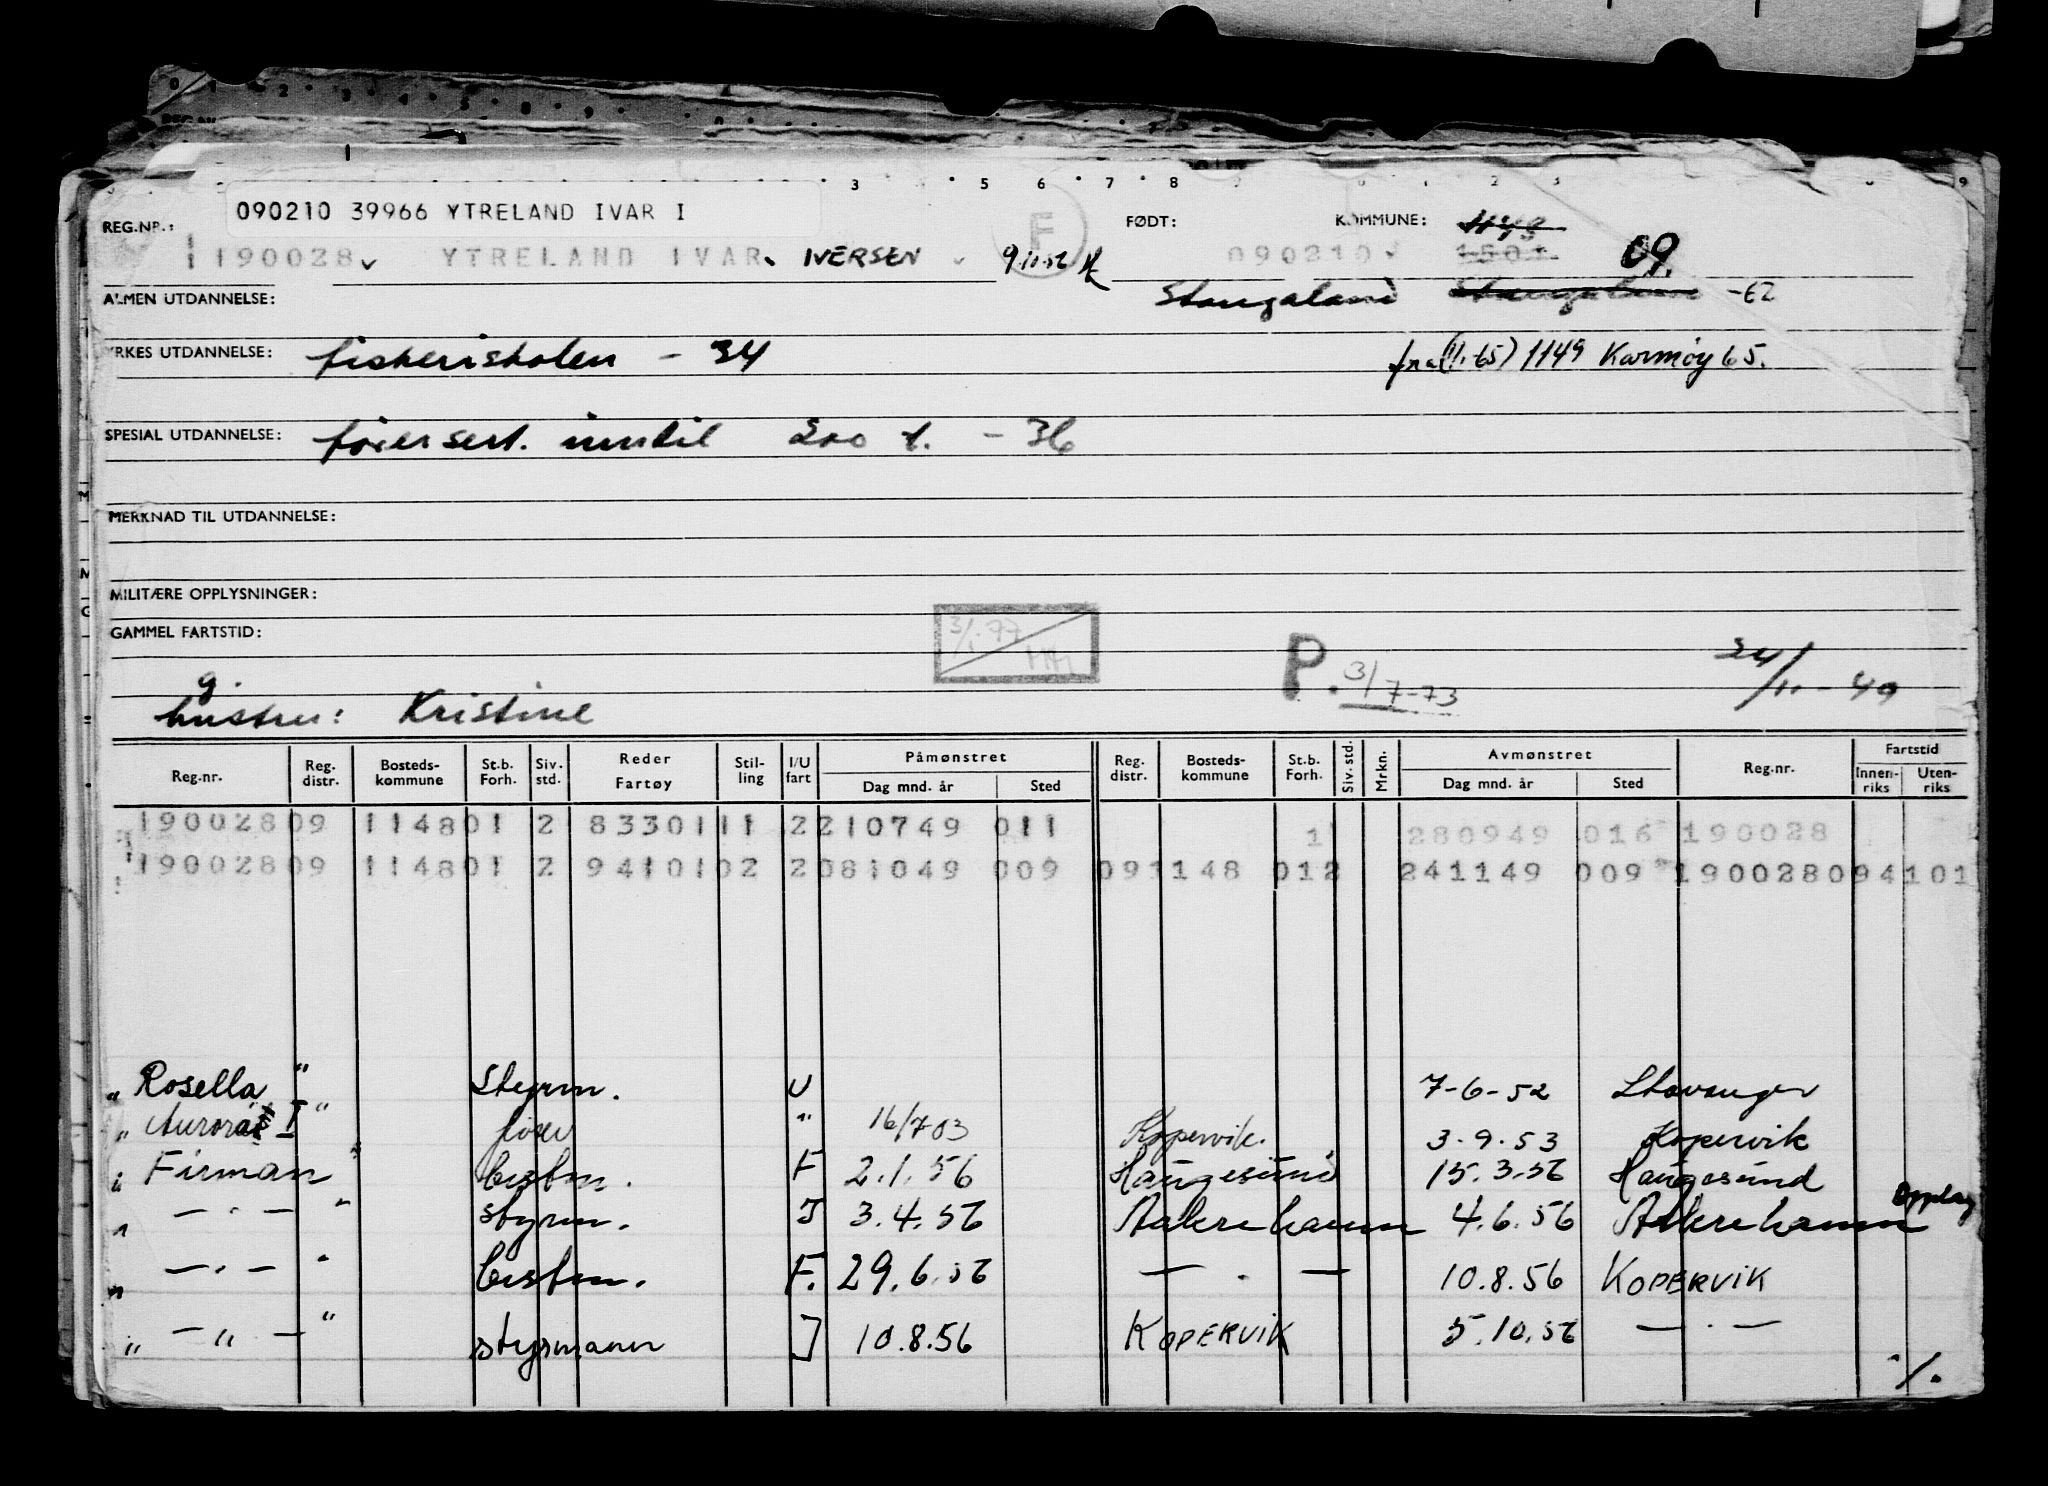 090210 39966 YTRELAND IVAR I
REG.NR.: FØDT: KOMMUNE: 1149
1190028 YTRELAND IVAR IVERSEN F 9.11.56 090210 1501 09.
ALMEN UTDANNELSE: Stangaland Stangaland -62
YRKES UTDANNELSE: fiskeriskolen - 34 fra (1/1-65) 1149 Karmøy 65.
SPESIAL UTDANNELSE: förersert. inntil 200 t. - 36
MERKNAD TIL UTDANNELSE:
MILITÆRE OPPLYSNINGER:
GAMMEL FARTSTID: 3/1.77 P. 3/7-73 24/11-49
g. hustru: Kristine
Reg.nr. Reg. distr. Bosteds-kommune St.b. Forh. Siv. std. Reder Fartøy Stil-ling I/U fart Påmønstret Dag mnd. år Sted Reg. distr. Bosteds-kommune St.b. Forh. Siv. std. Mrkn. Avmønstret Dag mnd. år Sted Reg.nr. Fartstid Innen-riks Uten-riks
190028 09 1148 01 2 833011 1 2 210749 011 1 280949 016 190028
190028 09 1148 01 2 941010 2 2 081049 009 09 1148 012 241149 009 190028094101
" Rosella " Styrm. U 7-6-52 Stavanger
" Aurora I " förer " 16/7 03 Kopervik. 3.9.53 Kopervik
" Firman " bestm. F 2.1.56 Haugesund 15.3.56 Haugesund
" — " — " styrm. I 3.4.56 Aakrehamn 4.6.56 Aakrehamn Opplag
" — " — " bestm. F. 29.6.56 — " — 10.8.56 KOPERVIK
" — " — " styrmann I 10.8.56 KOPERVIK 5.10.56 — " —
./.